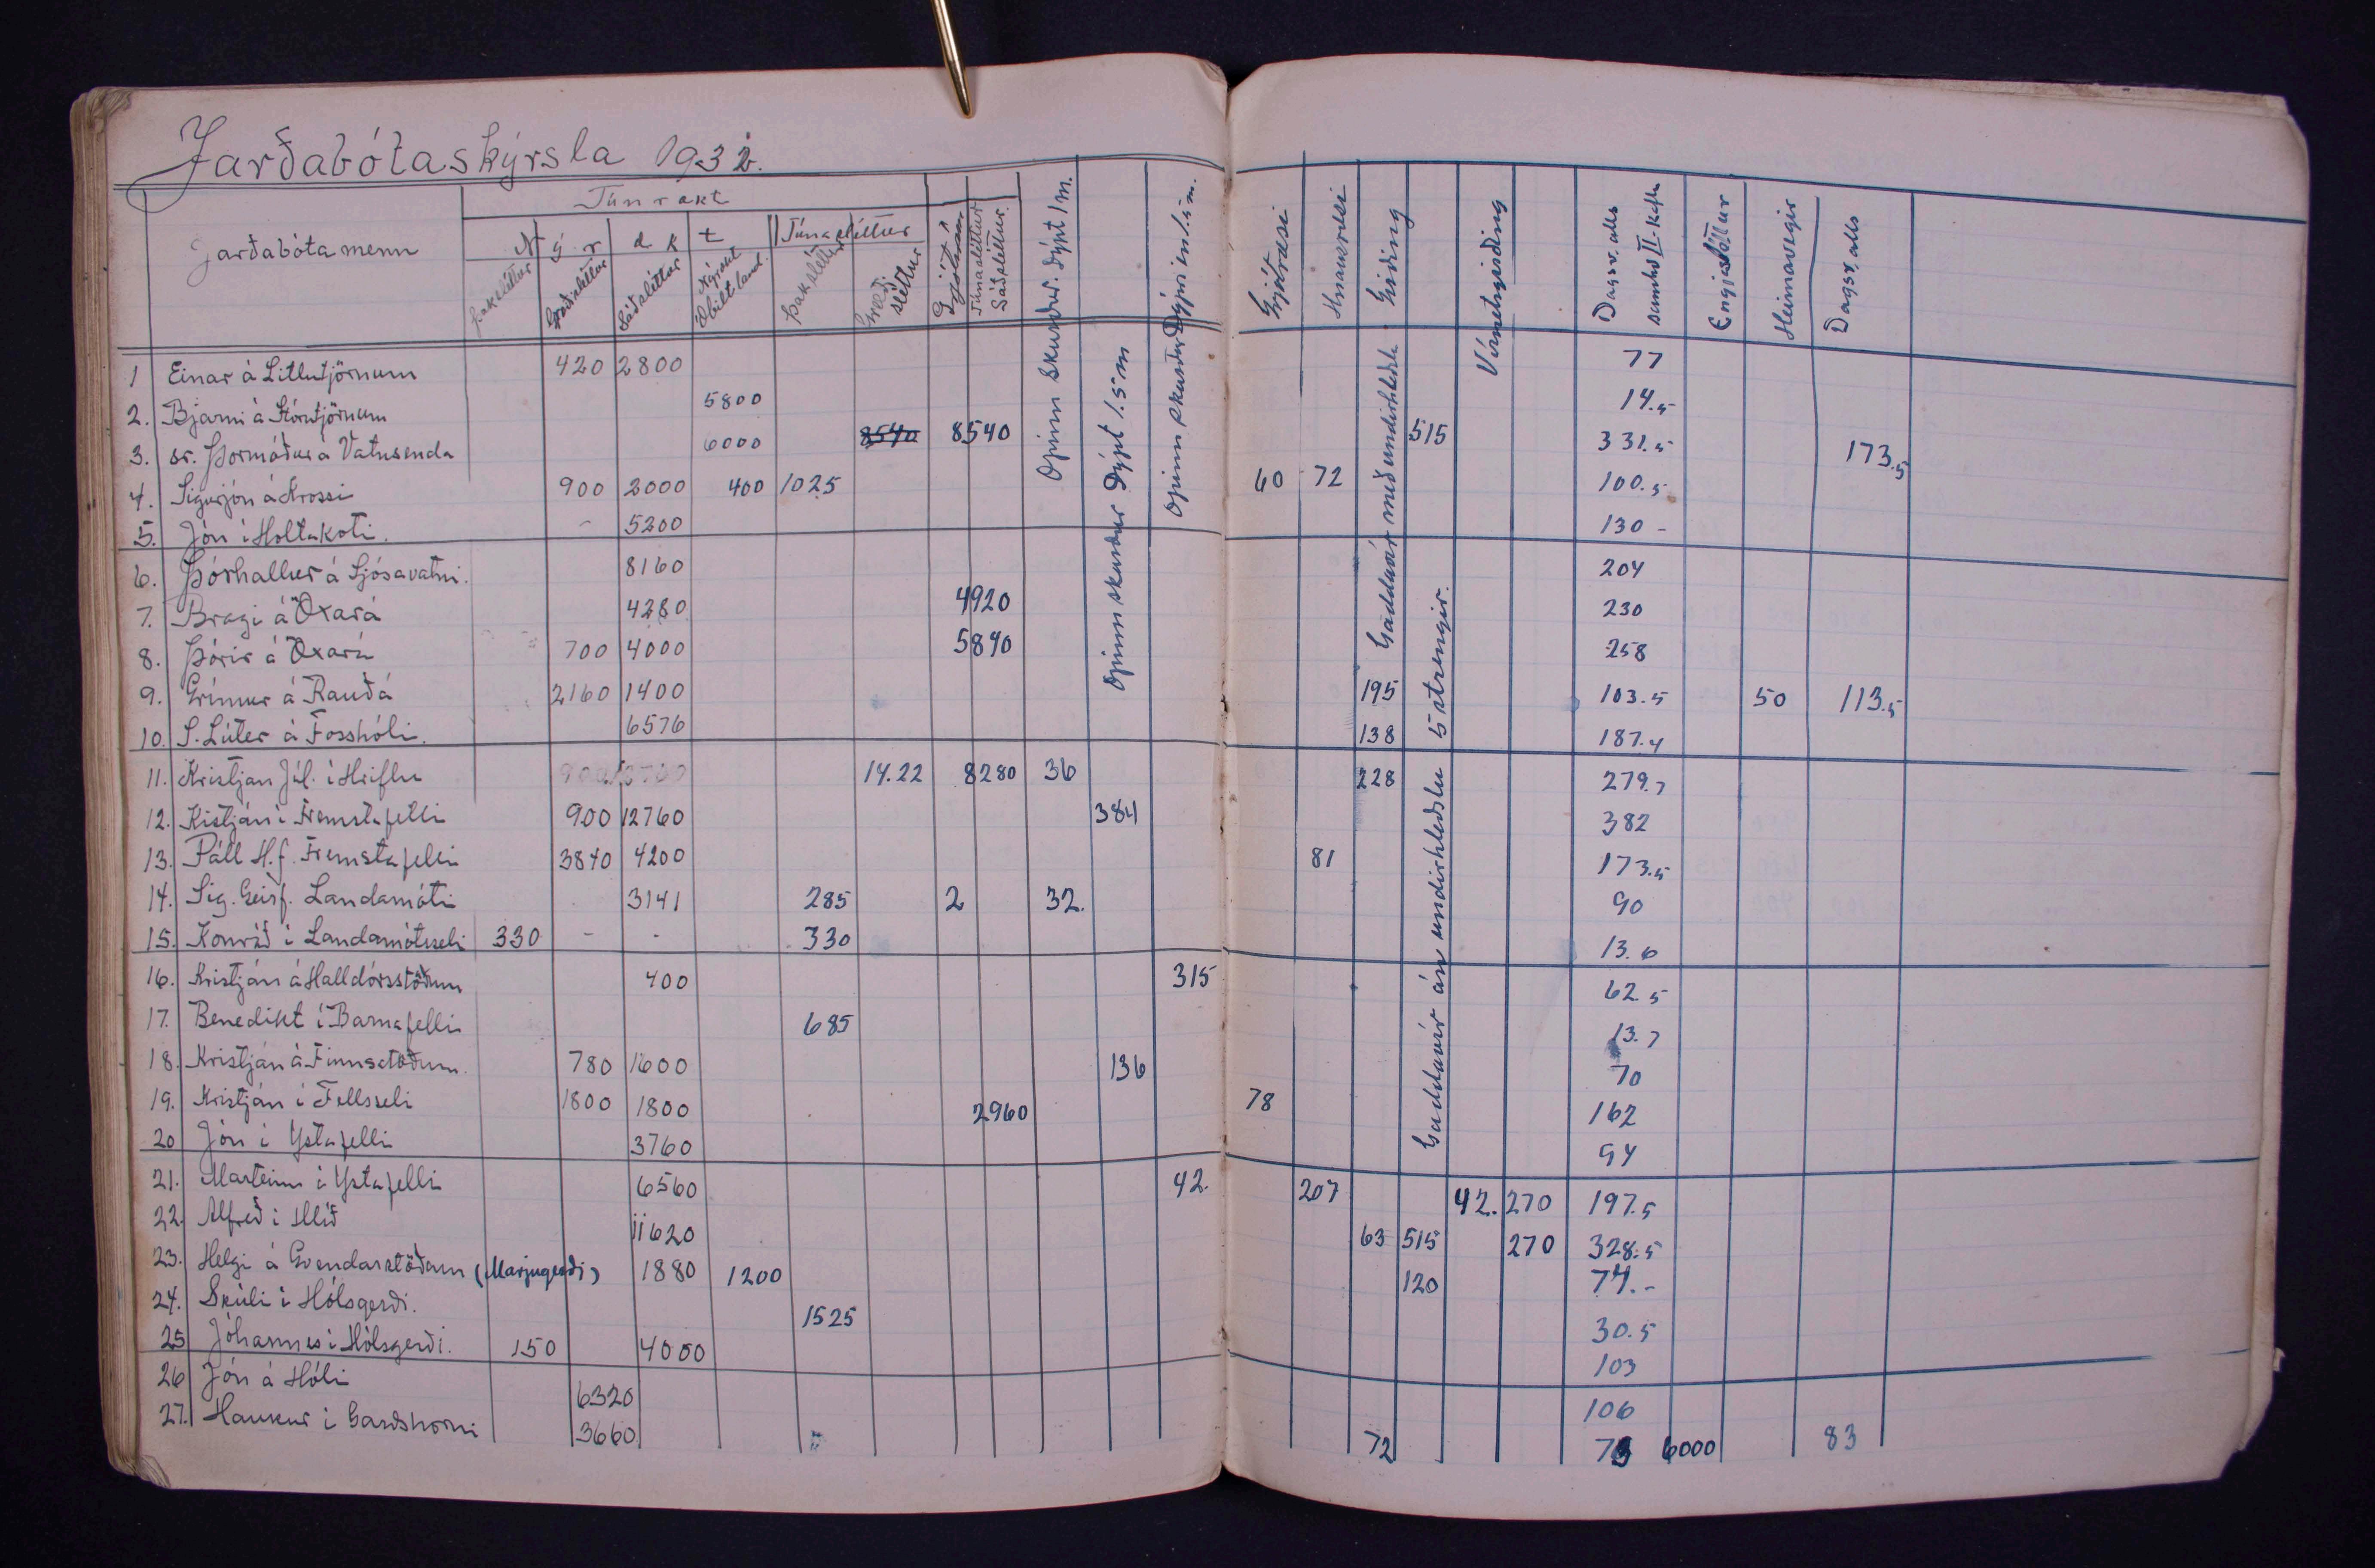 Jarðabótaskýrsla 1932.
Jarðabótamenn
Túnrækt
Nýrækt
Túnasléttur
Þaksléttur
Græðisléttur
Sáðsléttur
Óbilt land.
Þaksléttur
Græði sléttur
Túnasléttur Sáðsléttur.
Opinn skurður. Dýpt 1 m.
Opinn skurður Dýpt 1.5 m
Opinn skurður Dýpri en 1.5 m.
Grjótræsi
Hnausræsi
Girðing
Gaddavír með undirhleðslu
Gaddavír án undirhleðslu 5 strengir.
Vírnetsgirðing
Dagsv. alls samkv II. kafla
Engjasléttur
Heimavegir
Dagsv. alls
1 Einar á Litlutjörnum 420 2800 77
2. Bjarni á Stórutjörnum 5800 14.5
3. sr. Þormóður á Vatnsenda 6000 8540 8540 515 331.5 173.5
4. Sigurjón á Krossi 900 2000 400 1025 60 72 100.5
5. Jón í Holtakoti. - 5200 130 -
6. Þórhallur á Ljósavatni. 8160 204
7. Bragi á Öxará 4280 4920 230
8. Þórir á Öxará 700 4000 5840 258
9. Grímur á Rauðá 2160 1400 195 103.5 50 113.5
10. S. Lúter á Fosshóli. 6576 138 187.4
11. Kristján Júl. í Hriflu 14.22 8280 36 228 279.7
12. Kistján í Fremstafelli 900 12760 384 382
13. Páll H.f. Fremstafelli 3840 4200 81 173.5
14. Sig. Geirf. Landamóti 3141 285 2 32. 90
15. Konráð í Landamótsseli 330 - - 330 13.6
16. Kristján á Halldórsstöðum 400 315 62.5
17. Benedikt í Barnafelli 685 13.7
18. Kristján á Finnsstöðum. 780 1600 136 70
19. Kristján í Fellsseli 1800 1800 2960 78 162
20 Jón í Ystafelli 3760 94
21. Marteinn í Ystafelli 6560 42. 207 42. 270 197.5
22. Alfreð í Hlíð 11620 63 515 270 328.5
23. Helgi á Gvendarstöðum (Marjugerði) 1880 1200 120 77.-
24. Skúli í Hólsgerði. 1525 30.5
25 Jóhannes í Hólsgerði. 150 4000 103
26 Jón á Hóli 6320 106
27. Haukur í Garðshorni 3660 72 73 6000 83